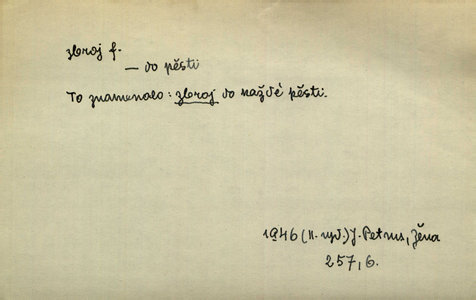 zbroj f.
— do pěsti
To znamenalo: zbroj do každé pěsti.
1946 (II. vyd.) J. Petrus, Žena
257, 6.